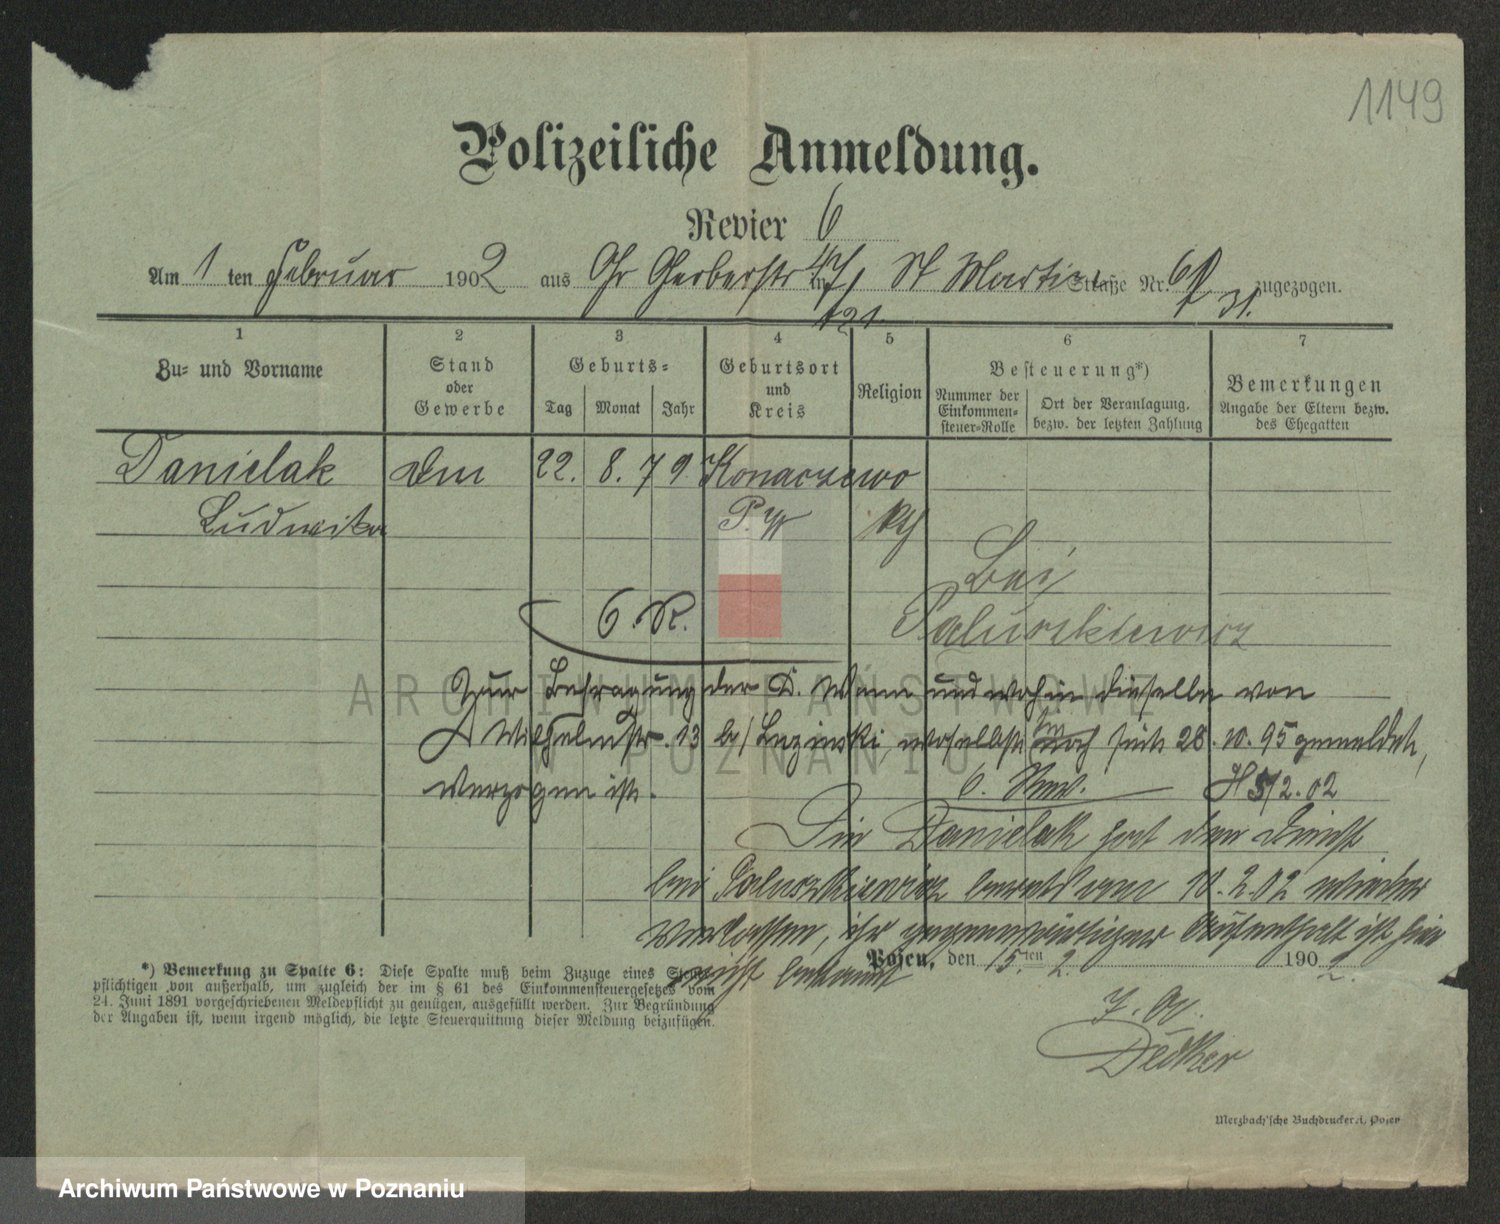 1149
Polizeiliche Anmeldung.
Revier 6
Am 1 ten Februar 1902 aus Gr Gerberstr 47 in St Martin Straße Nr. 67 zugezogen.
121 II.
1 2 3 4 5 6 7
Zu- und Vorname Stand oder Gewerbe Geburts- Geburtsort und Kreis Religion Besteuerung*) Bemerkungen
Tag Monat Jahr Nummer der Einkommen-steuer-Rolle Ort der Veranlagung, bezw. der letzten Zahlung Angabe der Eltern bezw. des Ehegatten
Danielak 22. 8. 79 Konaczewo
Ludwika P. W kth
Bei
6. R. Paluszkiewicz
ARCHIWUM PAŃSTWOWE
W POZNANIU
Zur Befragung der D. wann und wohin dieselbe von
Wilhelmstr. 13 b/ Lezinski, woselbst sie noch seit 28. 10. 95 gemeldet,
verzogen ist.
6. Rev. 5/2. 02
Die Danielak hat den Dienst
bei Paluszkiewicz bereits am 10. 2. 02 wieder
verlassen, ihr gegenwärtiger Aufenthalt ist hier
nicht bekannt
Posen, den 15. ten 2. 1902.
*) Bemerkung zu Spalte 6: Diese Spalte muß beim Zuzuge eines Steuer-
pflichtigen von außerhalb, um zugleich der im § 61 des Einkommensteuergesetzes vom
24. Juni 1891 vorgeschriebenen Meldepflicht zu genügen, ausgefüllt werden. Zur Begründung
der Angaben ist, wenn irgend möglich, die letzte Steuerquittung dieser Meldung beizufügen.
Decker
Merzbach'sche Buchdruckerei, Posen
Archiwum Państwowe w Poznaniu